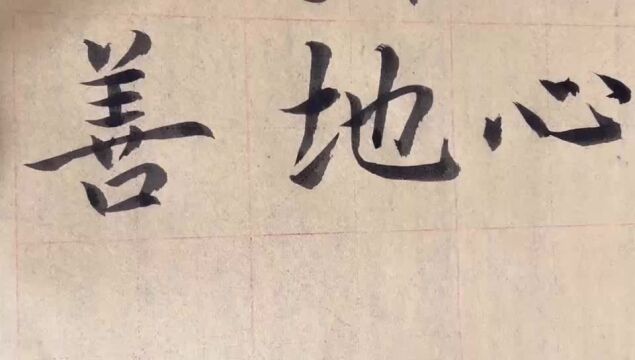 心地善